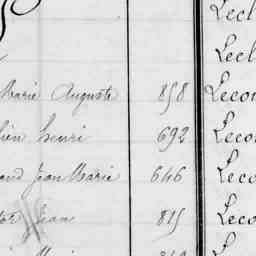 Lecl
Lecl
Marie Auguste 858 Lecon
ien henri 692 Leco
and Jean Marie 646 Leco
tor Jean 815 Leco